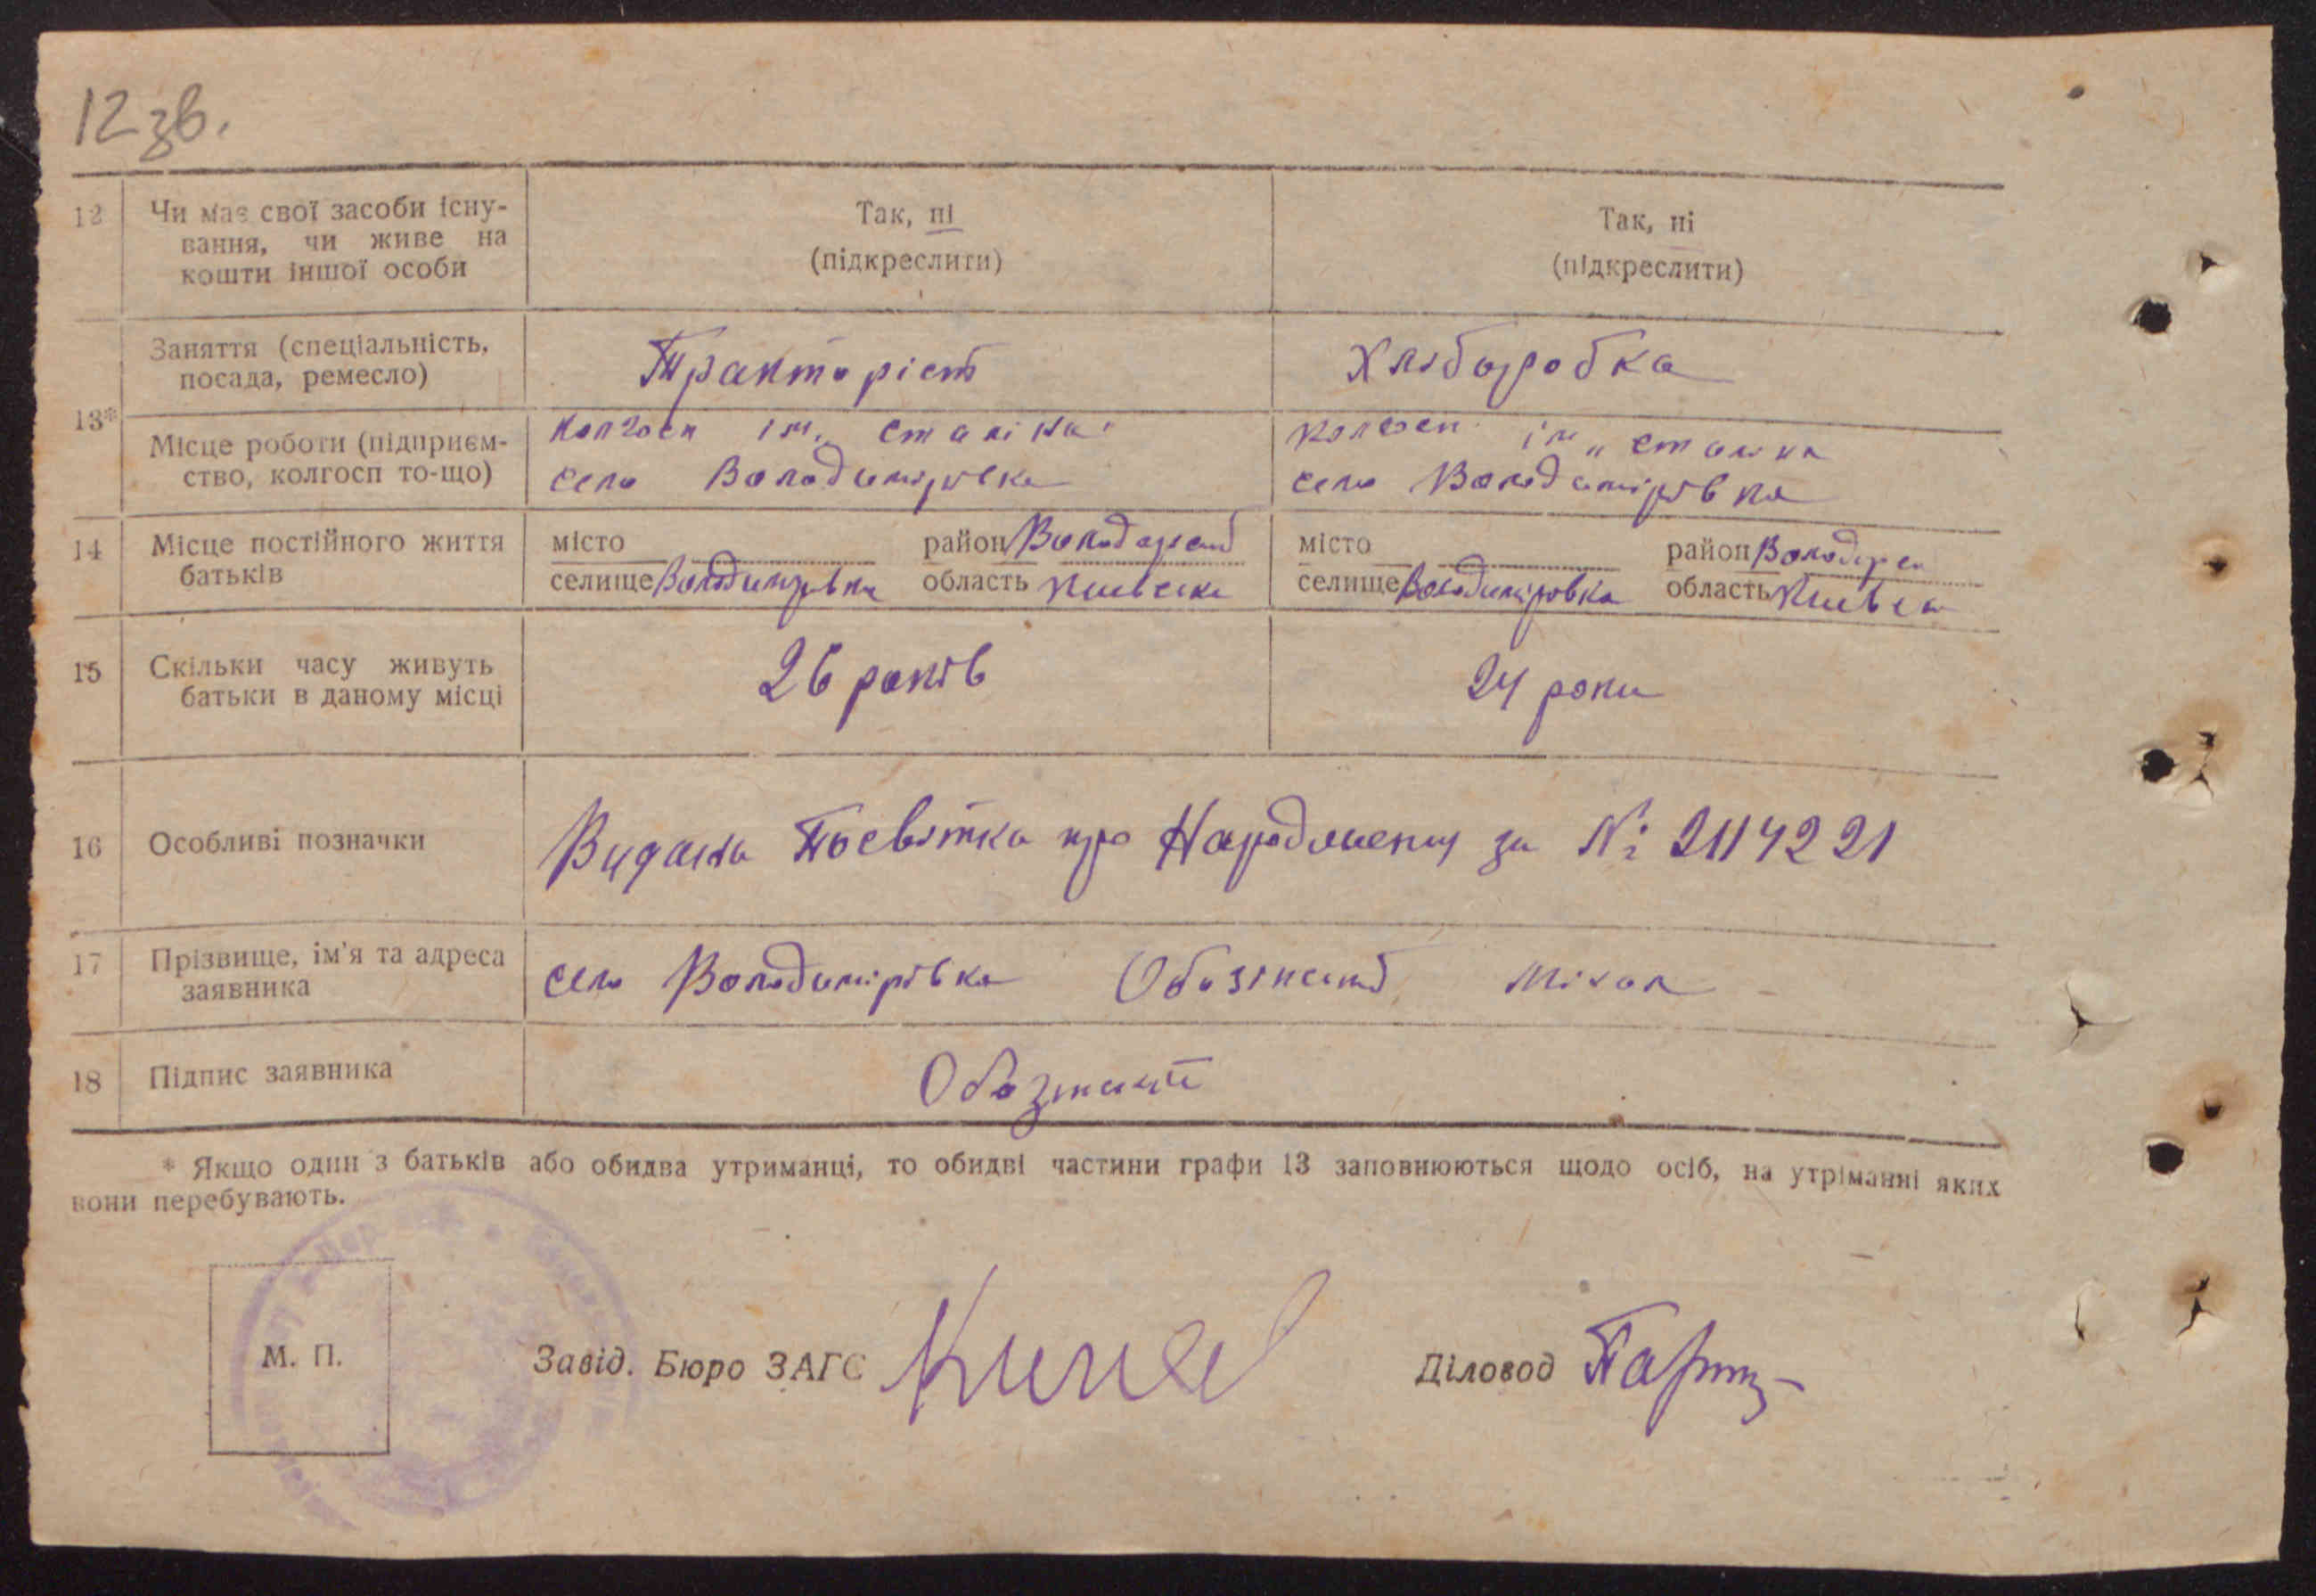 12 зв.
12 Чи має свої засоби існу-
вання, чи живе на
кошти іншої особи
Так, ні
(підкреслити)
Так, ні
(підкреслити)
13*
Заняття (спеціальність,
посада, ремесло)
Тракторіст
Хліборобка
Місце роботи (підприєм-
ство, колгосп то-що)
колгосп ім. сталіна
село Володимірівка
колгосп ім. сталіна
село Володимірівка
14 Місце постійного життя
батьків
місто район Володарсьқ
селище Володимірівка область Київська
місто район Володарс
селище Володимірівка область Київсь
15 Скільки часу живуть
батьки в даному місці
26 років
24 роки
16 Особливі позначки
Видана Посвітка про Народження за № 2114221
17 Прізвище, ім'я та адреса
заявника
село Володимірівка Обозінский Міхал
18 Підпис заявника
* Якщо один з батьків або обидва утриманці, то обидві частини графи 13 заповнюються щодо осіб, на утріманні яких
вони перебувають.
М. П.
Завід. Бюро ЗАГС
Діловод